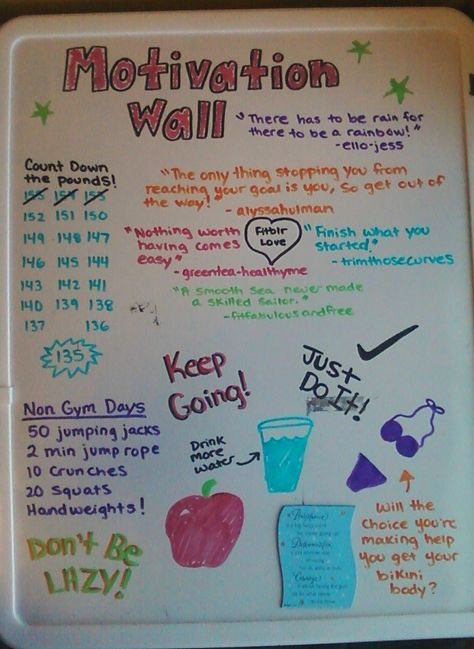 Motivation
Wall
"There has to be rain for
there to be a rainbow!"
-ello-jess
Count Down
the pounds!
155 154 153
152 151 150
149 148 147
146 145 144
143 142 141
140 139 138
137 136
135
"The only thing stopping you from
reaching your goal is you, So get out of
the way!"
- alyssahulman
"Nothing worth
having comes
easy"
- greentea-healthyme
Fitblr
Love
"Finish what you
started"
- trimthosecurves
"A smooth sea never made
a skilled sailor."
- fitfabulousandfree
Keep
Going!
JUST
DO IT!
Non Gym Days
50 jumping jacks
2 min jump rope
10 crunches
20 Squats
Handweights!
Drink
more
water
Don't Be
LAZY!
Will the
choice you're
making help
you get your
bikini
body?